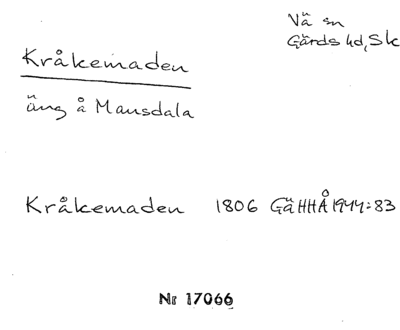 Vä sn
Gärds hd, Sk
Kråkemaden
äng å Mansdala
Kråkemaden 1806 GäHHÅ 1944:83
Nr 17066